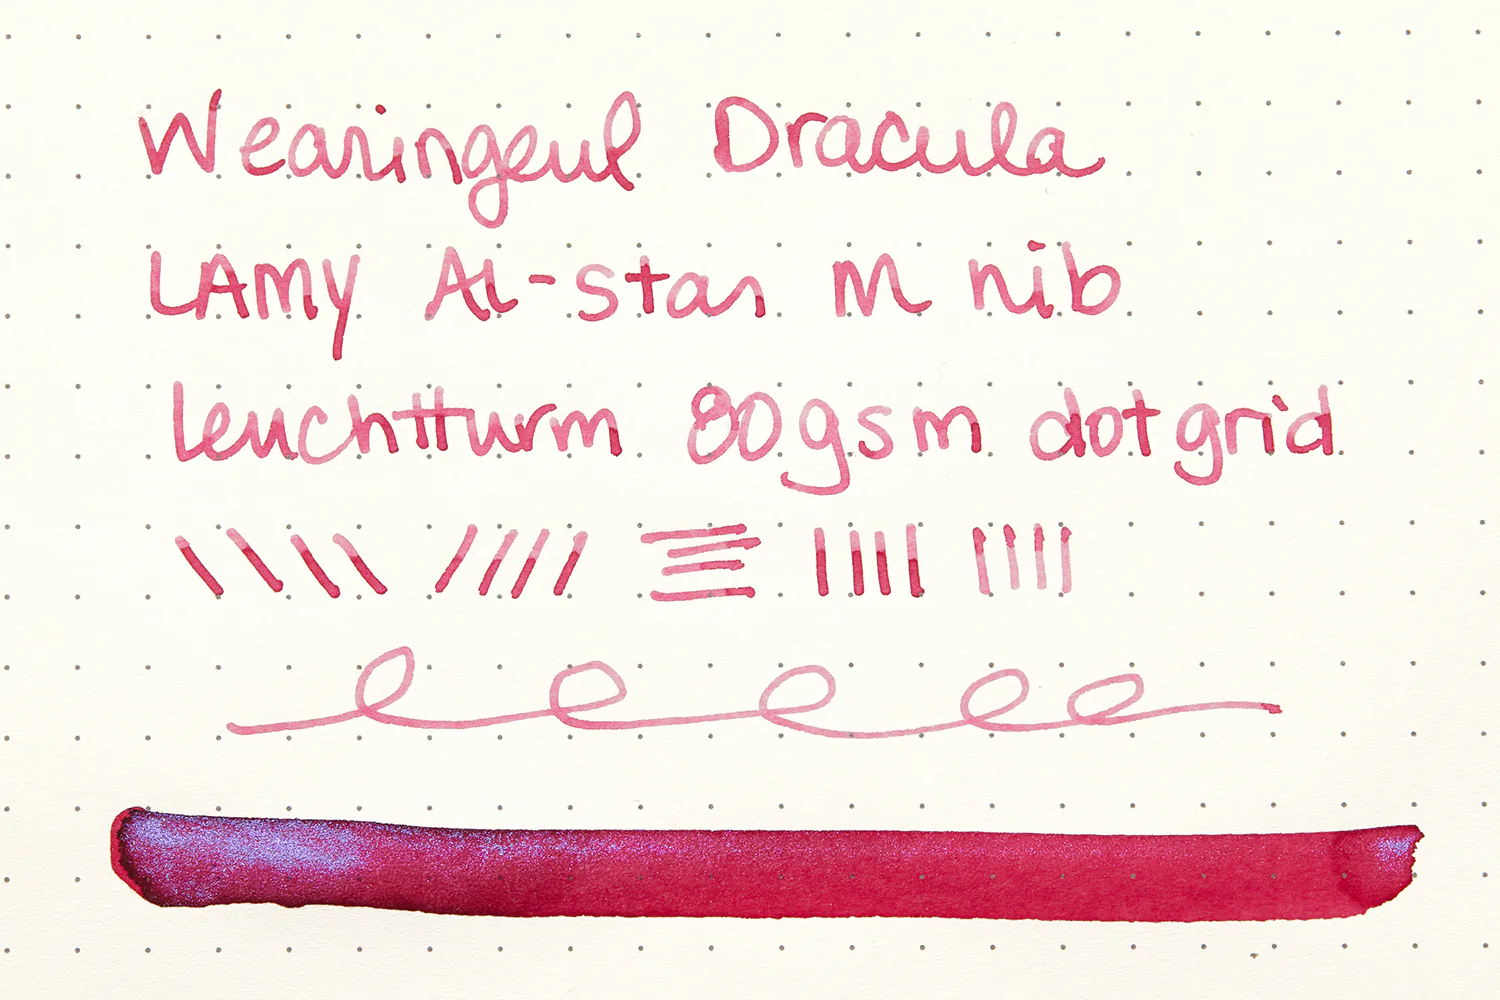 Wearingeul Dracula
LAMY Al-star M nib
leuchtturm 80gsm dot grid